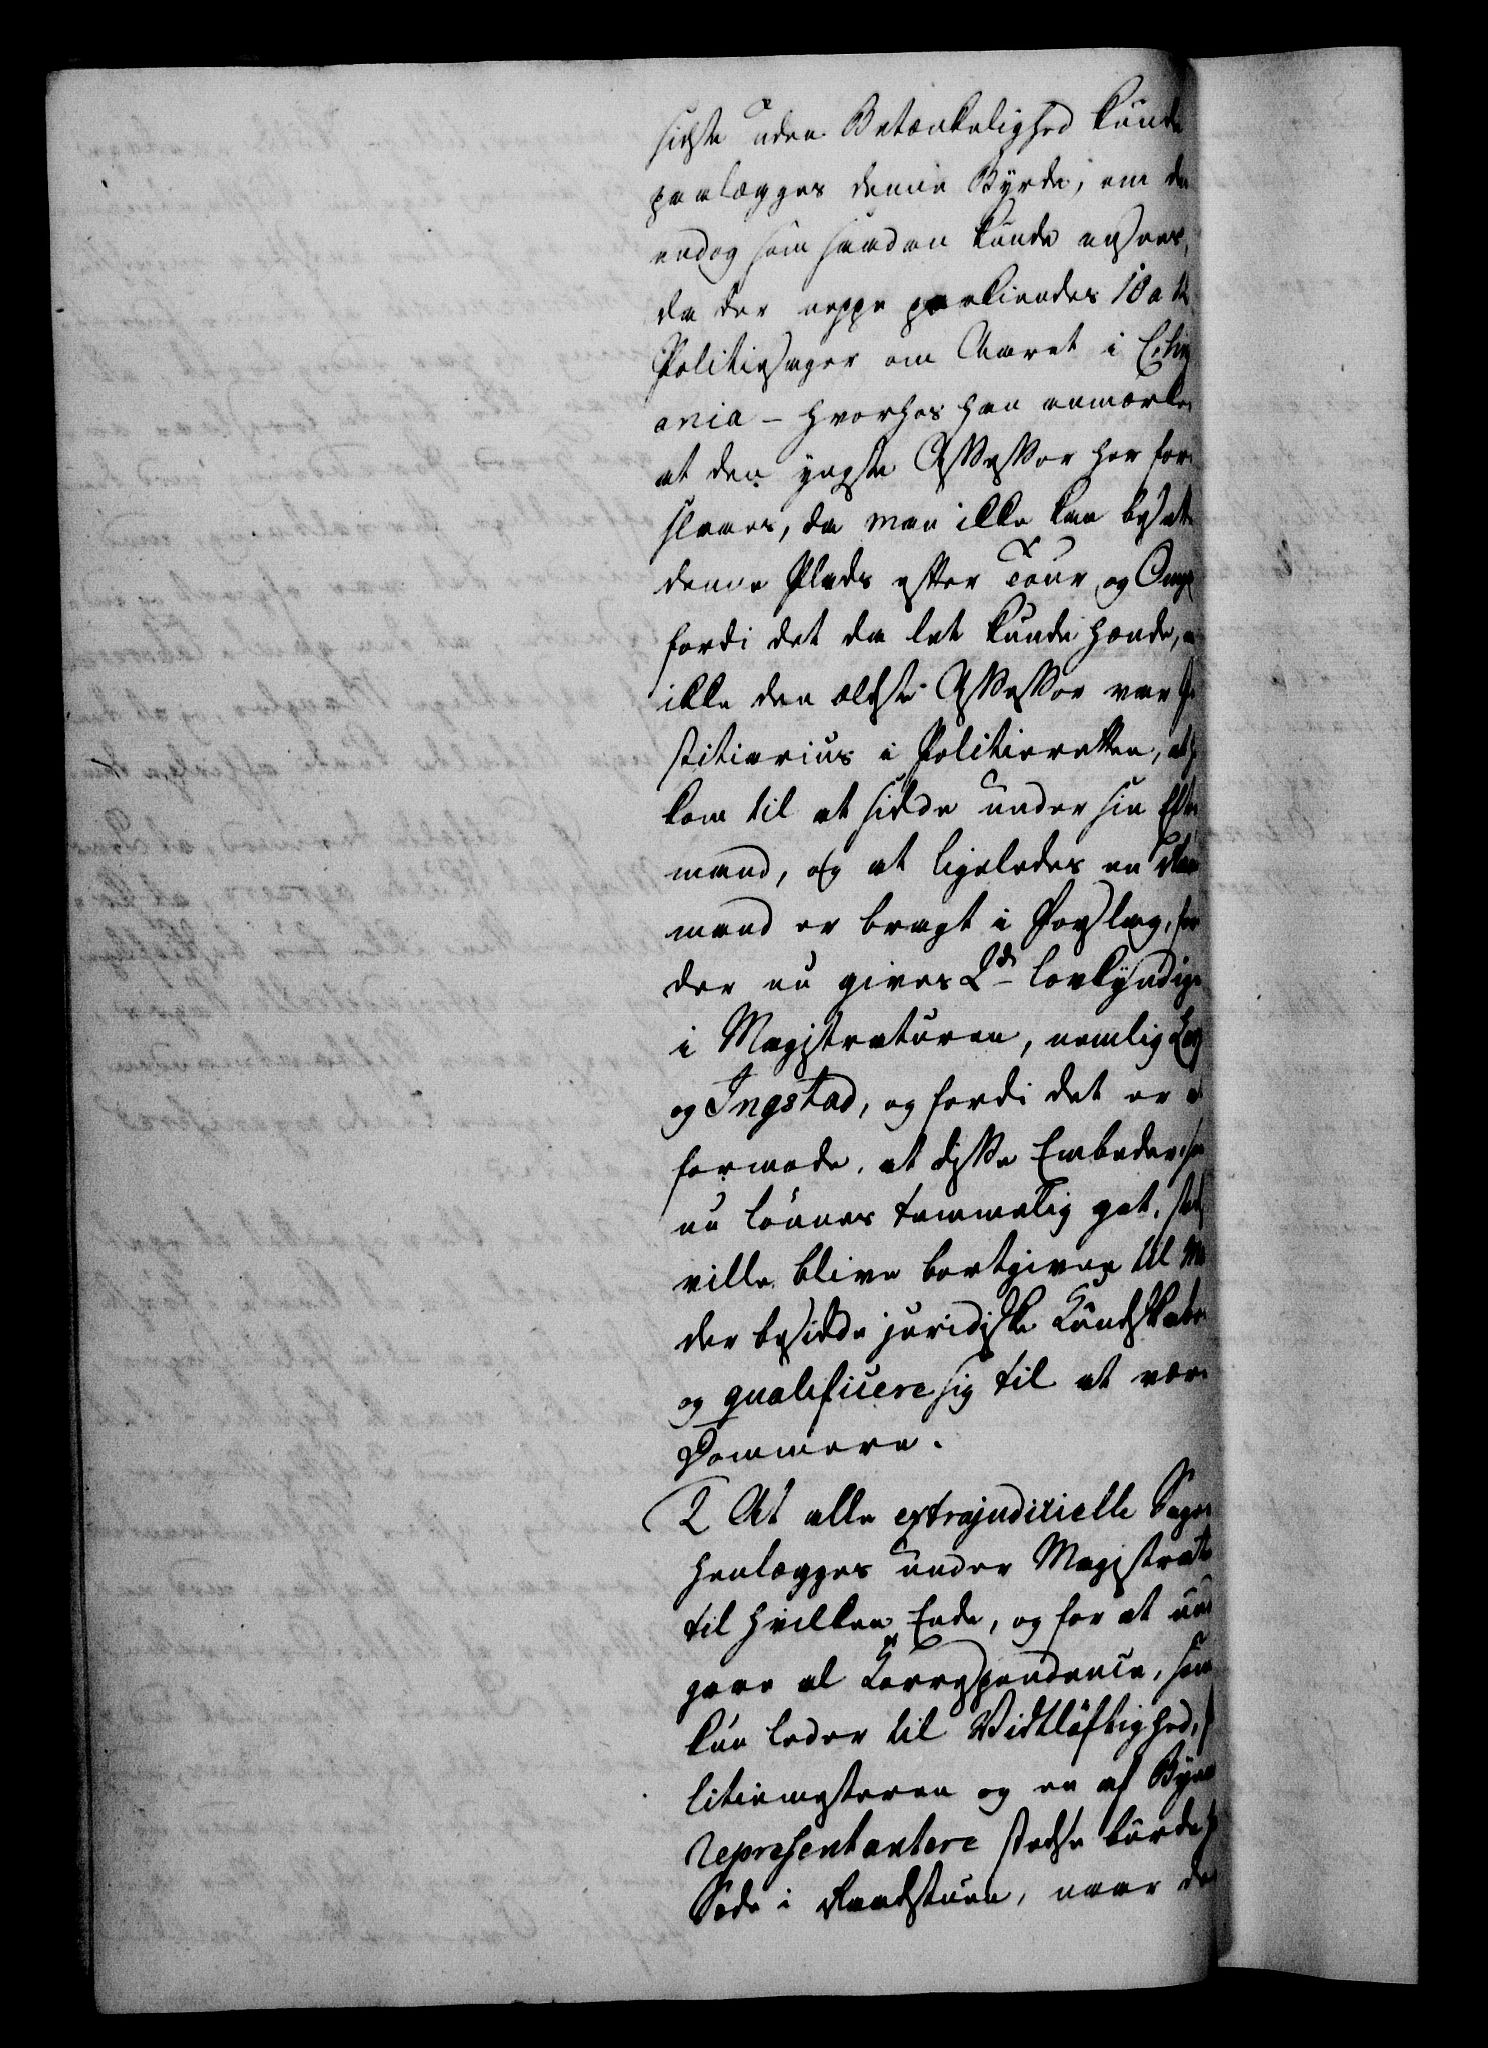 sidste uden Betænkelighed kunde
paalægges denne Byrde, om de
endog som saadan kunde ansees,
da der neppe paakiendes 10 a 12
Politiesager om Aaret i Christi
ania – hvorhos han anmærker
at den yngste Assessor her fore
slaaes, da man ikke kan besætte
denne Plads efter Tour og Omg
fordi det da let kunde hænde,
ikke den ældste Assessor var Ju
stitiarius i Politieretten, at
kom til at sidde under sin Efter
mand, og at ligeledes en Raad
mand er bragt i Forslag, for
der nu gives 2de lovkyndige
i Magistraturen, nemlig
og Ingstad, og fordi det er at
formode, at disse Embeder, som
nu lønnes temmelig got, stedse
ville blive bortgiven til Mænd
der besidde juridiske Kundskaber
og qualificere sig til at være
Dommere.
2 At alle extrajudicielle Sager
henlægges under Magistraten
til hvilken Ende, og for at und
gaae al Correspondence, som
kun leder til Vidtløftighed, Po
litiemesteren og en af Byens
repræsentantere stedse burde
Sæde i Raadstuen, naar de